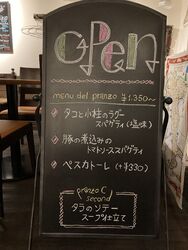 open
menu del pranzo ¥1,350〜
タコと小柱のラグー
スパゲティ(+塩味)
豚の煮込みの
トマトソーススパゲティ
ペスカトーレ(+¥330)
pranzo C
second
タラのソテー
スープ仕立て